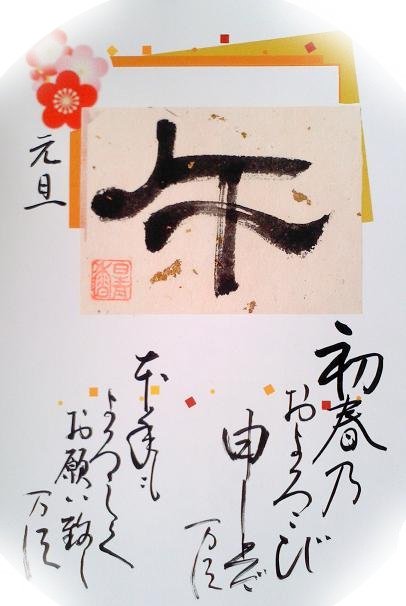 午
元旦
初春乃
およろこび
申し上げ
万須
本年も
よろしく
お願い致し
万須